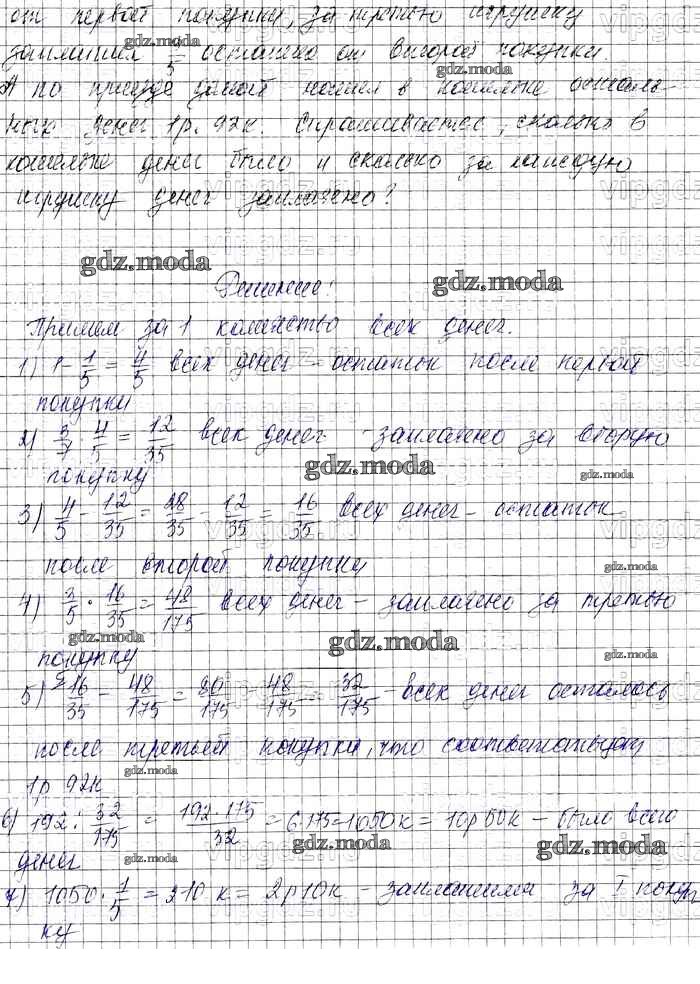 от первой покупки, за третью игрушку
заплатил 3/5 остатка от второй покупки.
А по приезде домой нашел в кошельке осталь-
ных денег 1р. 92к. Спрашивается, сколько в
кошельке денег было и сколько за каждую
игрушку денег заплачено?
Решение:
Примем за 1 количество всех денег.
1) 1 - 1/5 = 4/5 всех денег - остаток после первой
покупки
2) 3/7 · 4/5 = 12/35 всех денег - заплачено за вторую
покупку
3) 4/5 - 12/35 = 28/35 - 12/35 = 16/35 всех денег - остаток
после второй покупки
4) 3/5 · 16/35 = 48/175 всех денег - заплачено за третью
покупку
5) 16/35 - 48/175 = 80/175 - 48/175 = 32/175 - всех денег осталось
после третьей покупки, что соответствует
1р 92к
6) 192 : 32/175 = 192·175/32 = 6·175 = 1050к = 10р 50к - было всего
денег
7) 1050 · 1/5 = 210 к = 2р10к - заплатили за I покуп
ку
gdz.moda
vipgdz.ru